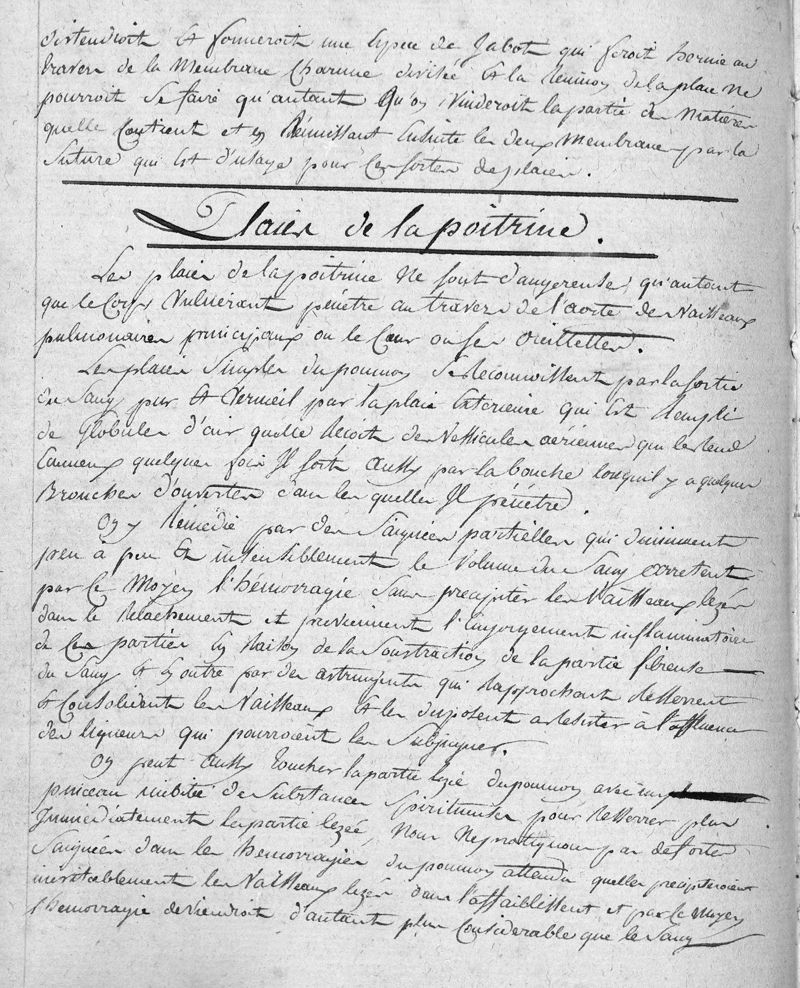 distendroit et formeroit une espece de Jabot qui feroit hernie au
travers de la Membrane Charnue divisée et la Reunion de la plaie ne
pourroit se faire qu'autant Qu'on vinderoit la partie des Matières
quelle Contient et en Réunissant Ensuite les deux Membranes par la
Suture qui Est d'usage pour Ces sortes de plaies.
Plaies de la poitrine.
Les plaies de la poitrine ne sont dangereuses qu'autant
que le Corps Vulnérant penétre au travers de l'aorte des Vaisseaux
pulmonaires principaux ou le Cœur ou ses Oreillettes.
Les plaies Simples du poumon se Reconnoissent par la sortie
du Sang pur et Vermeil par la plaie Exterieure qui Est Rempli
de Globules d'air quelle Recoit des Vessicules aériennes qui le rend
Ecumeux quelques fois Il sort Aussy par la bouche lorsquil y a quelques
Bronches d'ouvertes dans les quelles Il pénétre.
On y Rémédie par des Saignées partielles qui diminuent
peu à peu et insensiblement le Volume du Sang arretent
par Ce Moyen l'hémorragie Sans precipiter les Vaisseaux lezés
dans le Relachement et previennent l'Engorgement inflammatoire
de Ces parties En Raison de la Soustraction de la partie fibreuse
du Sang et En outre par des astringents qui Rapprochant Resserrent
et Consolident les Vaisseaux et les disposent a resister a l'affluence
des liqueurs qui pourroient les Subjuguer.
On peut Aussy Toucher la partie lezée du poumon avec un
pinceau imbibé de Substances Spiritueuses pour Resserrer plus
Immédiatement la partie lezée, Nous Ne prattiquons pas de fortes
Saignées dans les hemorragies du poumon attendu quelles precipiteroient
inévitablement les Vaisseaux lezés dans l'affaiblissement et par Ce Moyen
l'hemorragie deviendroit d'autant plus Considerable que le Sang